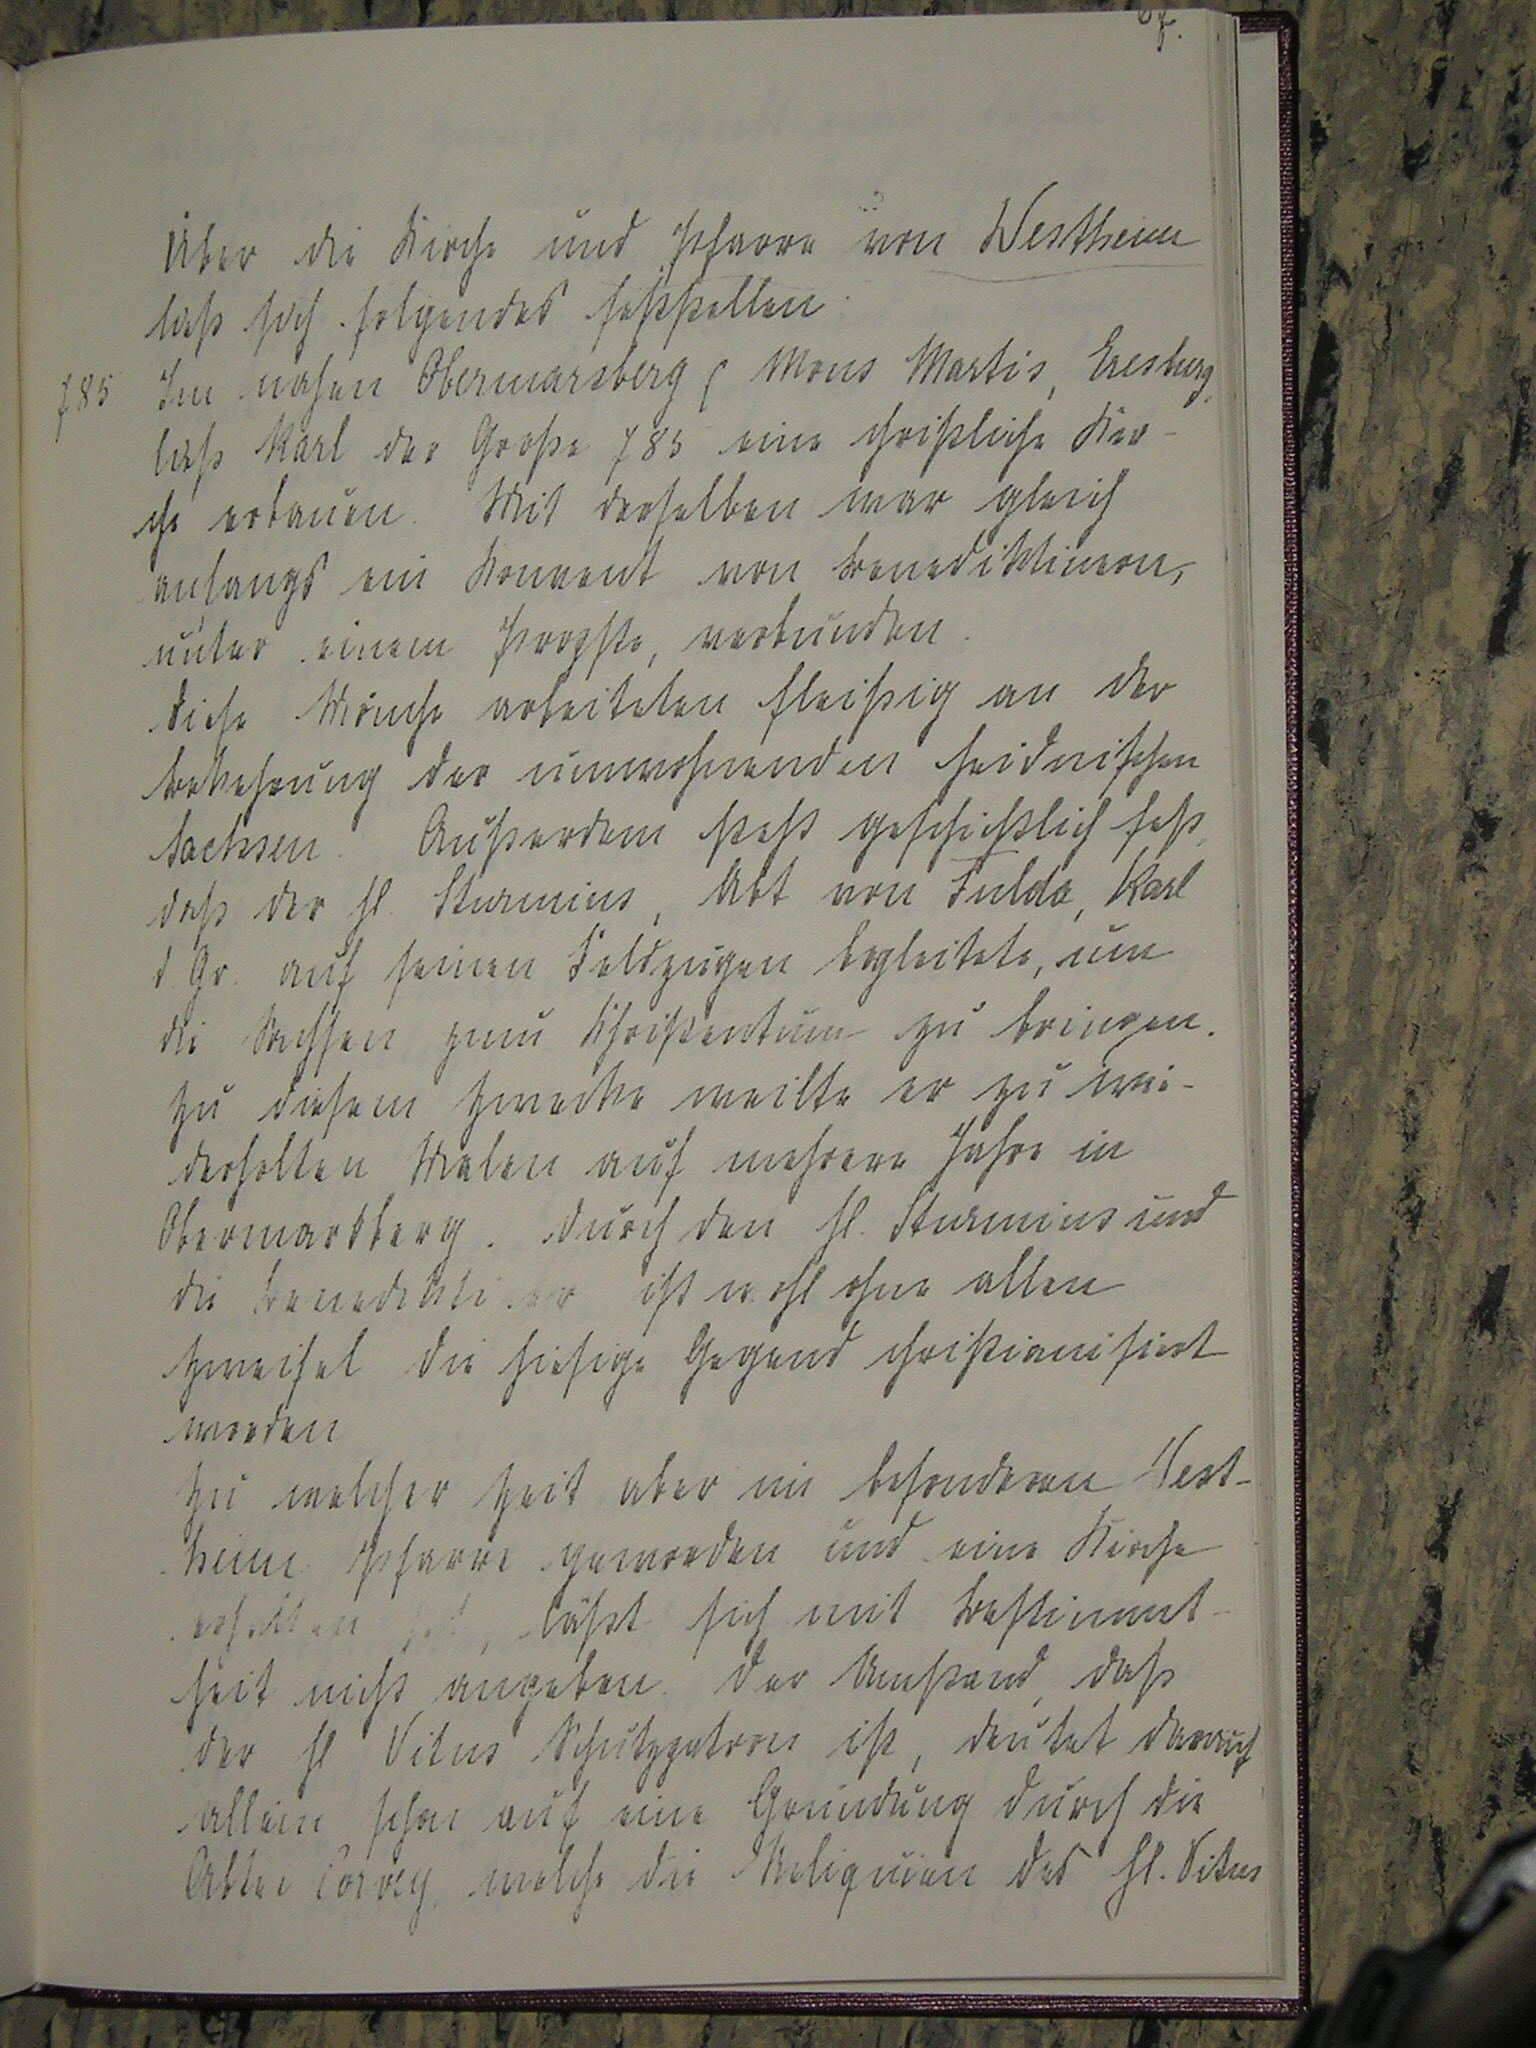 Über die Kirche und Pfarre von Westheim
läßt sich folgendes feststellen:
785 Im nahen Obermarsberg (Mons Martis, Eresburg,
ließ Karl der Große 785 eine christliche Kir-
che erbauen. Mit derselben war gleich
anfangs ein Konvent von Benediktinern,
unter einem Propste, verbunden.
Diese Mönche arbeiteten fleißig an der
Bekehrung der umwohnenden heidnischen
Sachsen. Außerdem steht geschichtlich fest,
daß der hl. Sturmius, Abt von Fulda, Karl
d. Gr. auf seinen Feldzügen begleitete, um
die Sachsen zum Christentum zu bringen.
Zu diesem Zwecke weilte er zu wie-
derholten Malen auf mehrere Jahre in
Obermarsberg. Durch den hl. Sturmius und
die Benediktiner ist wohl ohne allen
Zweifel die hiesige Gegend christianisiert
worden
Zu welcher Zeit aber im besonderen West-
heim Pfarre geworden und eine Kirche
erhalten hat, läßt sich mit Bestimmt-
heit nicht angeben. Der Umstand, daß
der hl Vitus Schutzpatron ist, deutet darauf
allein schon auf eine Gründung durch die
Abtei Corvey, welche die Reliquien des hl. Vitus